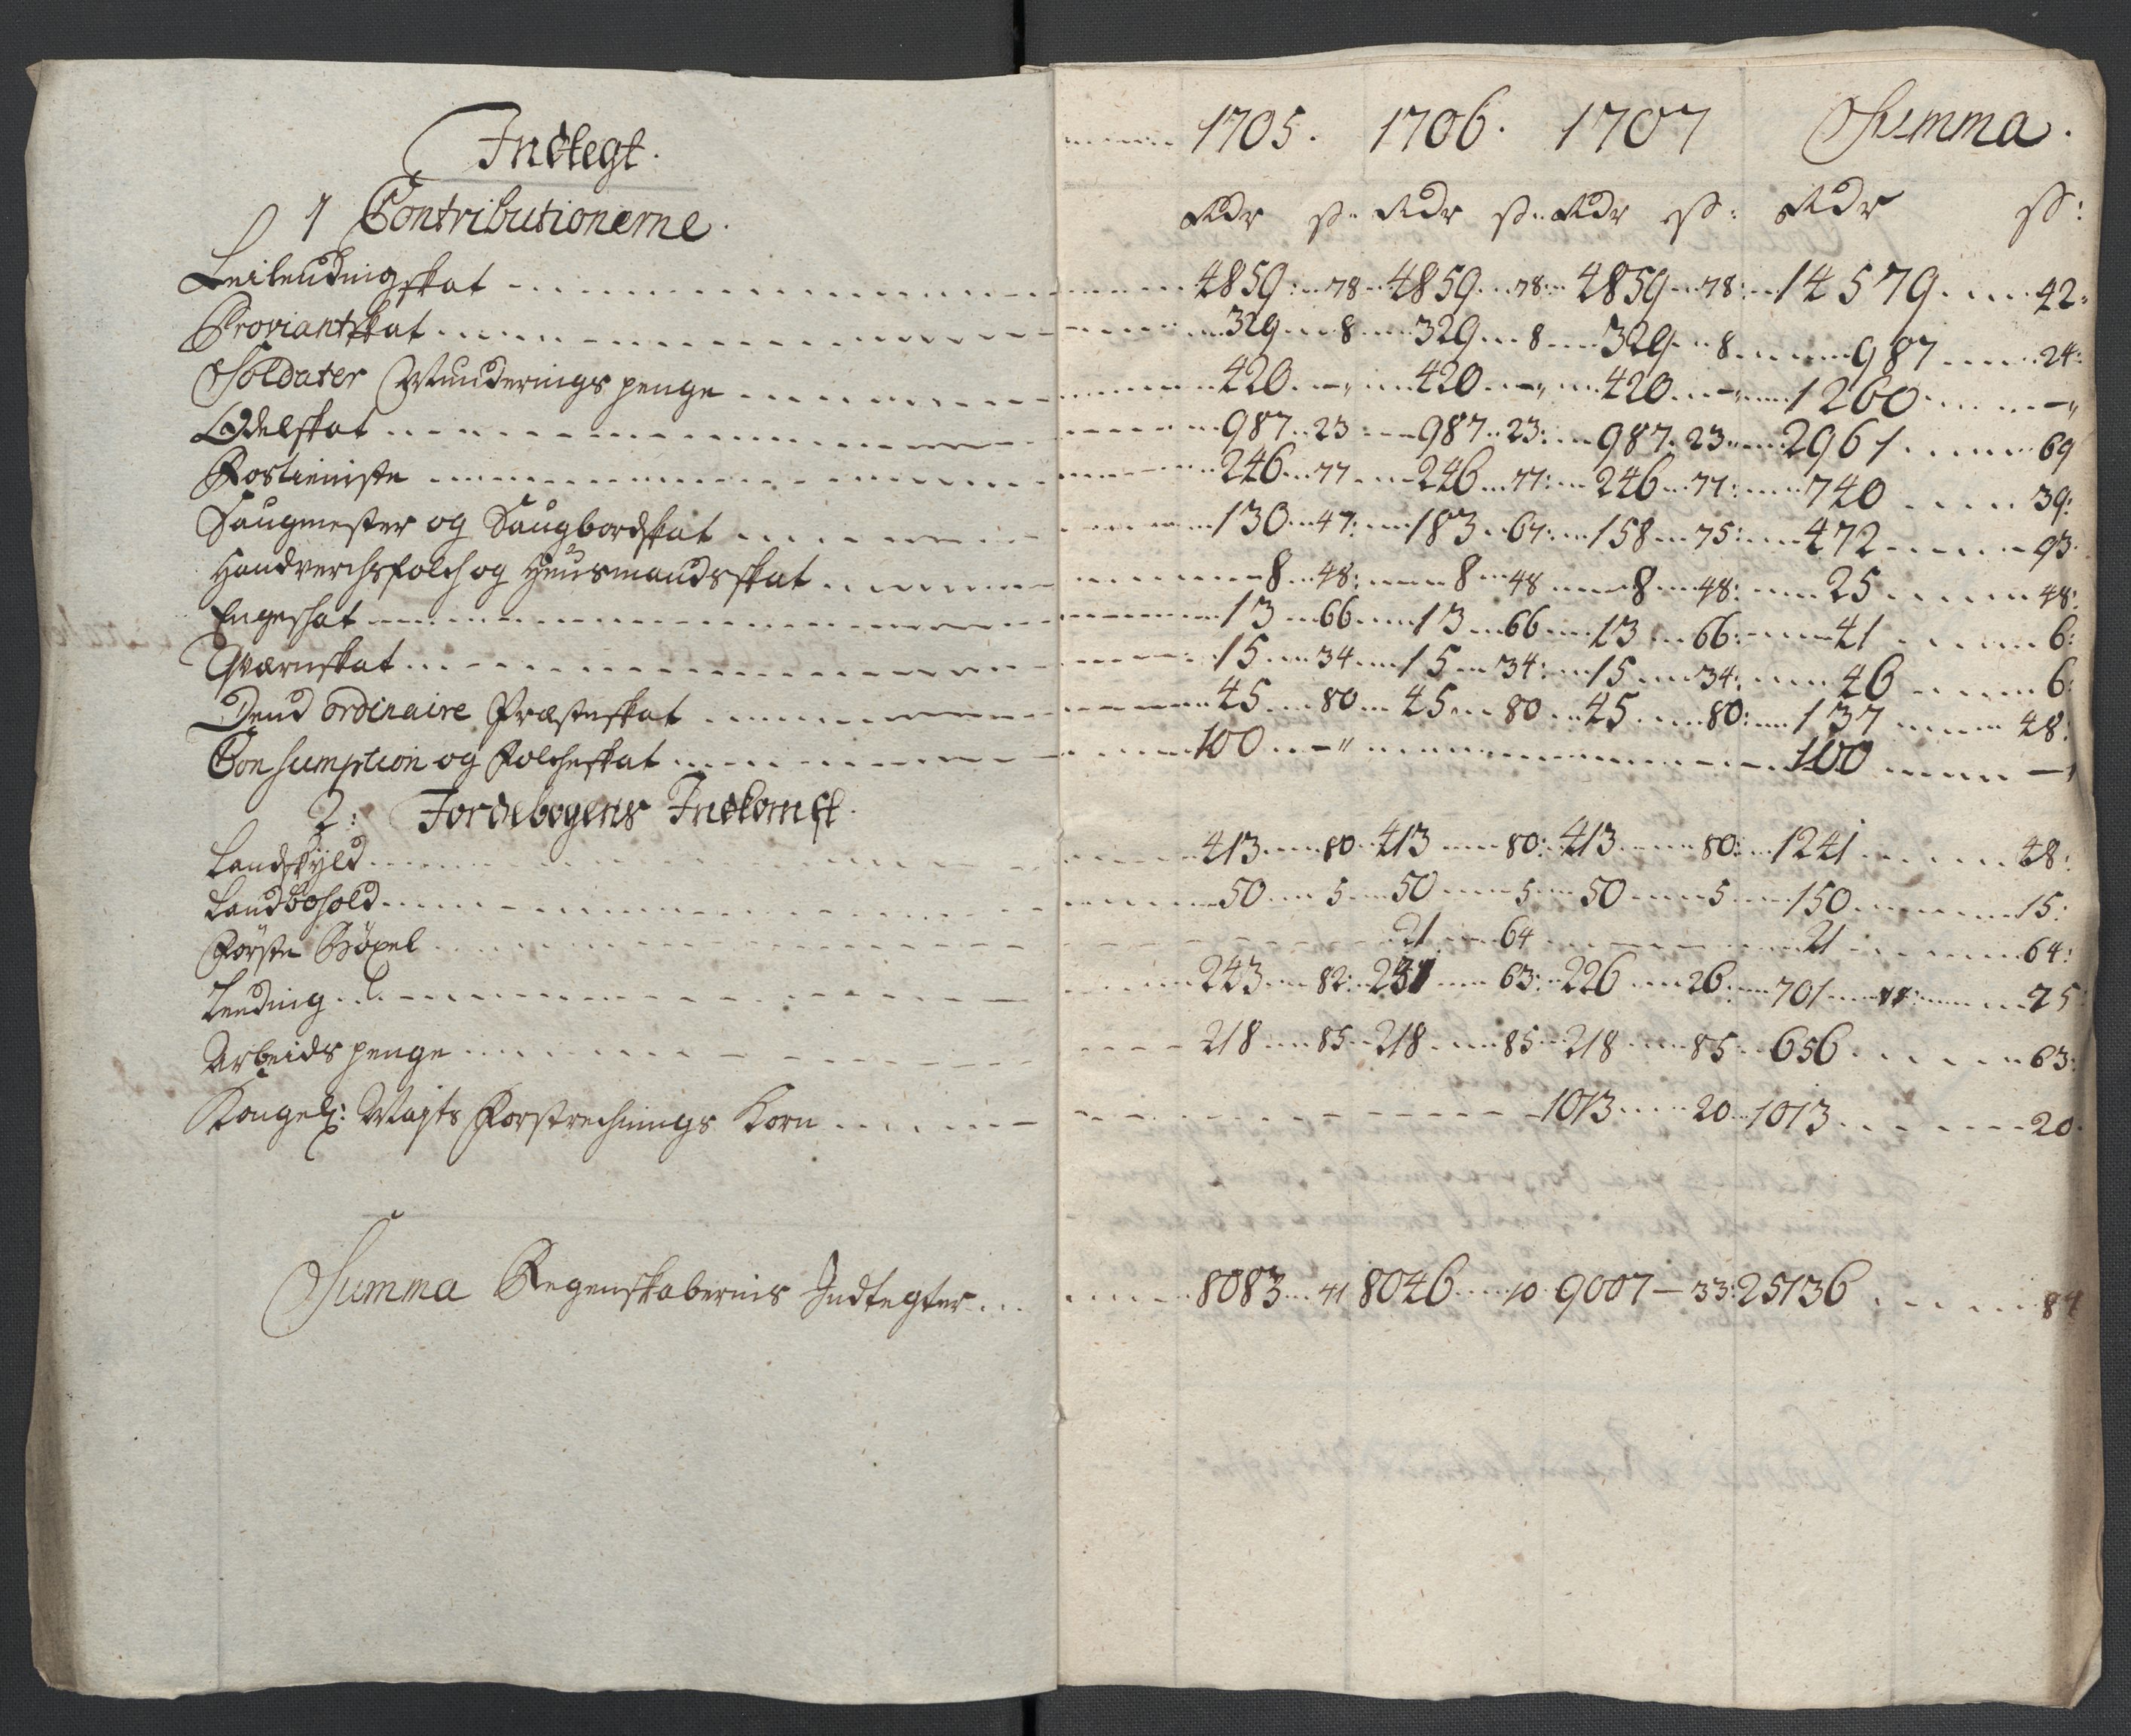 Indtegt. 1705. 1706. 1707 Summa.
1 Contributionerne. Rdr ß. Rdr ß. Rdr ß: Rdr ß:
Leilendingskat 4859: 78 4859 78: 4859 78: 14579 42:
Proviantskat 329 8 329 8 329 8 987 24:
Soldater Munderings penge 420 – 420 – 420 – 1260 –
Odelskat 987 23 987 23: 987 23 2961 69
Rostieniste 246 77 246 77: 246 77: 740 39:
Saugmester og Saugbordskat 130 47: 183 67: 158 75: 472 93
Handverchsfolch og Huusmandsskat 8 48: 8 48 8 48: 25 48:
Engeskat 13 66 13 66 13 66: 41 6:
Qværnskat 15 34 15 34: 15 34: 46 6:
Dend ordinaire Præsteskat 45 80 45 80 45 80: 137 48:
Consumption og Folcheskat 100 – 100 –
2: Jordebogens Indkomst.
Landskyld 413 80 413 80: 413 80: 1241 48:
Landbohold 50 5 50 5 50 5 150 15:
Förste Böxel 21 64 21 64:
Leeding 243 82: 231 63: 226 26: 701 75:
Arbeids penge 218 85 218 85 218 85 656 63:
Kongel: Mayts Forstrechnings Korn 1013 20 1013 20
Summa Regenskabernis Indtegter 8083 41 8046 10 9007 – 33: 25136 84